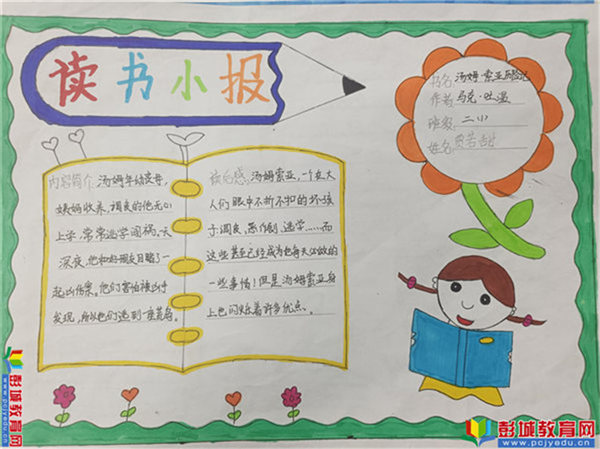 读书小报
书名:汤姆·索亚历险记
作者:马克·吐温
班级:二(1)
姓名:
内容简介:汤姆年幼丧母,
姨妈收养,调皮的他无心
上学,常常逃学闯祸,一天
深夜,他和好朋友目睹了一
起凶杀案。他们害怕被凶手
发现,所以他们逃到一座荒岛。
读后感:汤姆索亚,一个在大
人们眼中不折不扣的坏孩
子:调皮、恶作剧、逃学……而
这些甚至已经成为他每天必做的
一些事情!但是汤姆索亚身
上也闪烁着许多优点。
彭城教育网
www.pcjyedu.cn
彭城教育网
www.pcjyedu.cn